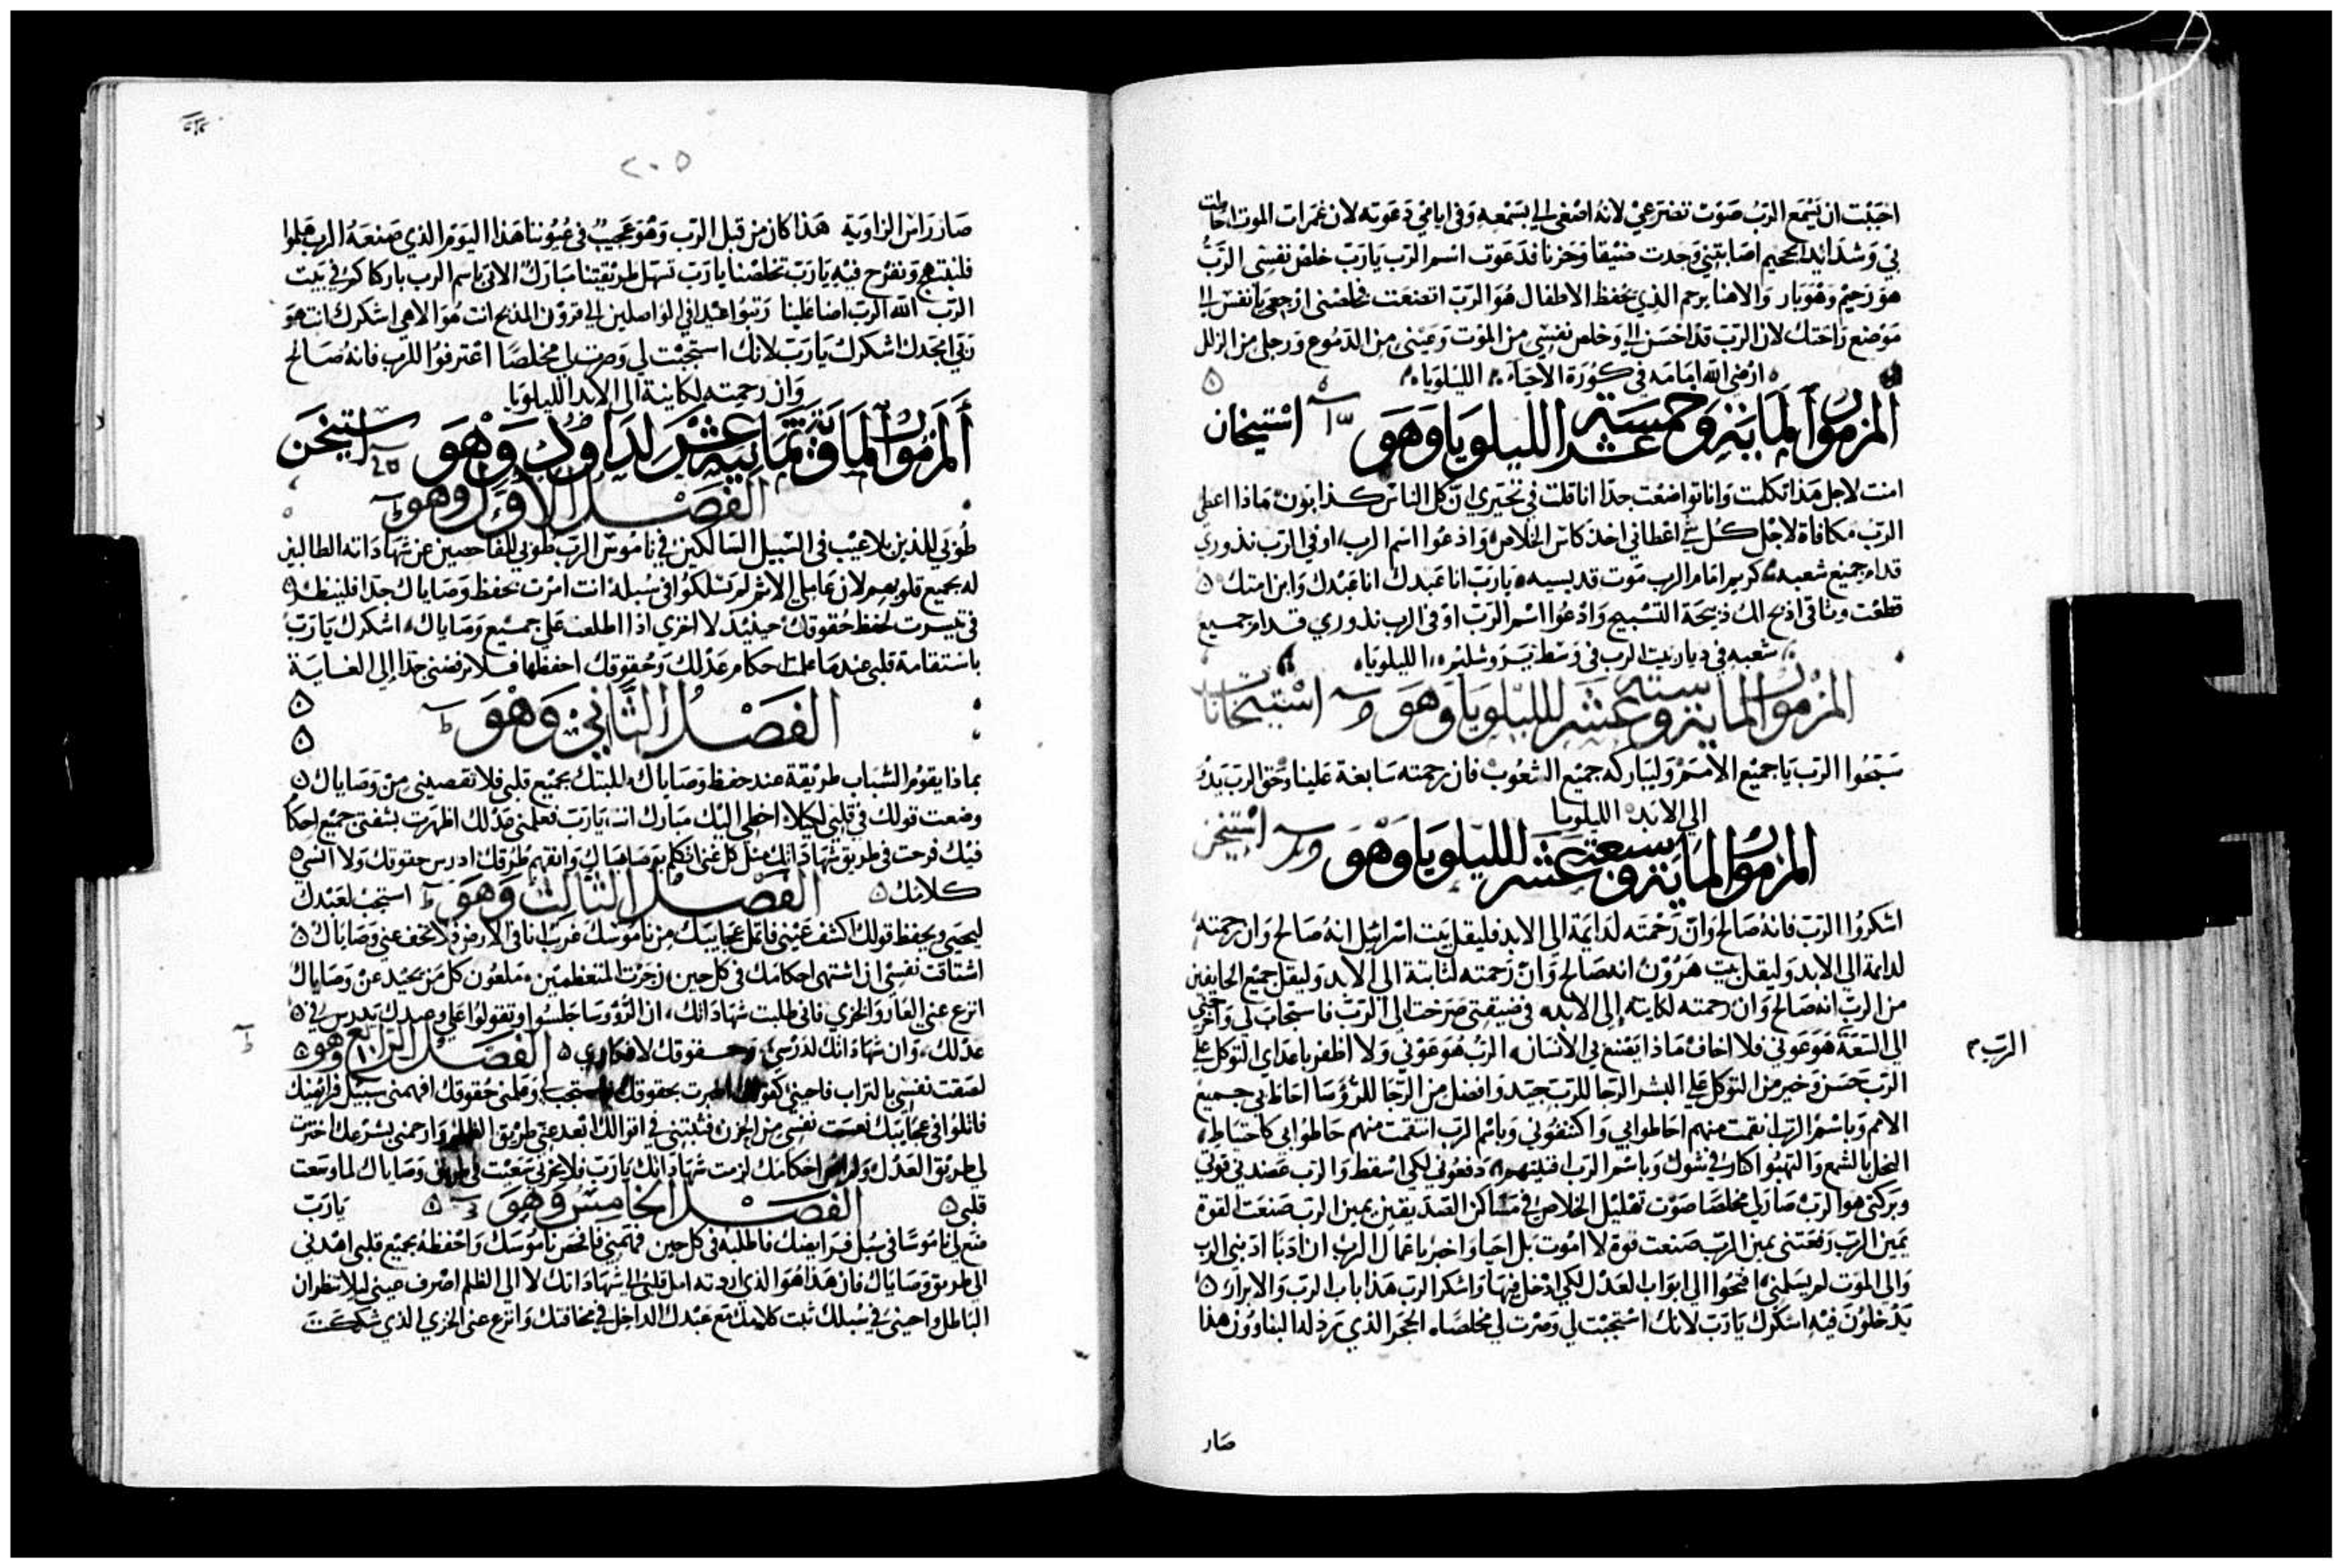 احببت ان يسمع الرب صوت تضرعي لانه اصغى الي بسمعه وفي ايامي دعوته لان غمرات الموت احاطت
بي وشدائد الجحيم اصابتني وجدت ضيقا وحزنا فدعوت اسم الرب يا رب خلص نفسي الرب
هو رحيم وهو بار والاهنا يرحم الذي يحفظ الاطفال هو الرب اتضعت فخلصني ارجعي يا نفس الي
موضع راحتك لان الرب قد احسن الي وخلص نفسي من الموت وعيني من الدموع ورجلي من الزلل
ارضي الله امامه في كورة الاحياء الليلويا
المزمور الماية وخمسة عشر الليلويا وهو استيخان
امنت لاجل هذا تكلمت وانا تواضعت جدا انا قلت في تحيري ان كل الناس كذابون ماذا اعطي
الرب مكافاة لاجل كل شي اعطاني اخذ كاس الخلاص وادعوا اسم الرب اوفي الرب نذوري
قدام جميع شعبه كريم امام الرب موت قديسيه يا رب انا عبدك انا عبدك وابن امتك
قطعت وثاقي اذبح لك ذبيحة التسبيح وادعوا اسم الرب اوفي الرب نذوري قدام جميع
شعبه في ديار بيت الرب في وسط يروشليم الليلويا
المزمور الماية وستة عشر الليلويا وهو استيخانات
سبحوا الرب يا جميع الامم وليباركه جميع الشعوب فان رحمته سابغة علينا وحق الرب يدو
الى الابد الليلويا
المزمور الماية وسبعة عشر الليلويا وهو استيخن
اشكروا الرب فانه صالح وان رحمته لدايمة الى الابد فليقل بيت اسرايل انه صالح وان رحمته
لدايمة الى الابد وليقل بيت هرون انه صالح وان رحمته لثابتة الى الابد وليقل جميع الخايفين
من الرب انه صالح وان رحمته لكاينه الى الابد في ضيقتي صرخت الى الرب فاستجاب لي واخرجني
الى السعة هو عوني فلا اخاف ماذا يصنع بي الانسان الرب هو عوني ولا اظفر باعداي التوكل على
الرب م
الرب حسن وخير من التوكل علي البشر الرجا للرب جيد وافضل من الرجا للرؤسا احاط بي جميع
الامم وباسم الرب انتقمت منهم احاطوا بي واكتنفوني وباسم الرب انتقمت منهم حاطوا بي كاحتياط
النحل بالشهع والتهبوا كنار في شوك وباسم الرب دفعوني لكي اسقط والرب عضدني قوتي
وبركتي هو الرب صار لي مخلصا صوت تهليل الخلاص في مساكن الصديقين يمين الرب صنعت القوة
يمين الرب رفعتني يمين الرب صنعت قوة لا اموت بل احيا واخبر باعمال الرب ان ادبا ادبني الرب
والى الموت لم يسلمني افتحوا لي ابواب العدل لكي ادخل فيها واشكر الرب هذا باب الرب والابرار
يدخلون فيه اشكرك يا رب لانك استجبت لي وصرت لي مخلصا الحجر الذي رذله البناوون هذا
صار
٢٠٥
صار راس الزاوية هذا كان من قبل الرب وهو عجيب في عيوننا هذا اليوم الذي صنعه الرب هلموا
فلنبتهج ونفرح فيه يا رب تخلصنا يا رب تسهل طريقتنا مبارك الاتي باسم الرب باركناكم في بيت
الرب الله الرب اضا علينا رتبوا عيدا في الواصلين الى قرون المذبح انت هو الاهي اشكرك انت هو
ربي امجدك اشكرك يا رب لانك استجبت لي وصرت لي مخلصا اعترفوا للرب فانه صالح
وان رحمته لكاينة الى الابد الليلويا
المزمور الماية وثمانية عشر لداوود وهو استيخن
الفصل الاول وهو
طوبى للذين بلا عيب في السبيل السالكين في ناموس الرب طوبى للفاحصين عن شهاداته الطالبين
له بجميع قلوبهم لان عاملي الاثم لم يسلكوا في سبله انت امرت بحفظ وصاياك جدا فلينظر
في تيسرت لحفظ حقوقك حينيذ لا اخزى اذا اطلعت على جميع وصاياك اشكرك يا رب
باستقامة قلبي عندما علمت احكام عدلك وحقوقك احفظها فلا ترفضني جدا الى الغاية
الفصل الثاني وهو
بماذا يقوم الشباب طريقة عند حفظ وصاياك طلبتك بجميع قلبي فلا تقصيني من وصاياك
وضعت قولك في قلبي لكيلا اخطي اليك مبارك انت يا رب فعلمني عدلك اظهرت بشفتي جميع احكا
فيك فرحت في طريق شهاداتك مثل كل غنى اتكلم بوصاياك واتفهم طرقك ادرس حقوقك ولا انسي
كلامك الفصل الثالث وهو استجب لعبدك
ليحيى ويحفظ قولك اكشف عيني فاتمل عجايبك من ناموسك غريب انا في الارض فلا تخف عني وصاياك
اشتاقت نفسي ان اشتهي احكامك في كل حين زجرت المتعظمين ملعون كل من يحيد عن وصاياك
انزع عني العار والخزي فاني طلبت شهاداتك ان الرؤوسا جلسوا وتقولوا علي وعبدك يدرس في
عدلك وان شهاداتك لدرسي وحقوقك لافكاري الفصل الرابع وهو
لصقت نفسي بالتراب فاحيني كقولك اخبرت بحقوقك فاستجب وعلمني حقوقك افهمني سبيل فرايضك
فاتلوا في عجايبك نعست نفسي من الحزن فثبتني في اقوالك ابعد عني طريق الظلم وارحمني بشرعك اخترت
لي طريق العدل ولم انس احكامك لزمت شهاداتك يا رب فلا تخزني سعيت في طريق وصاياك لما وسعت
قلبي الفصل الخامس وهو يا رب
ضع لي ناموسا في سبل فرايضك فاطلبه في كل حين فهمني فافحص ناموسك واحفظه بجميع قلبي اهدني
الى طريق وصاياك فان هذا هو الذي اردته امل قلبي الى شهاداتك لا الى الظلم اصرف عيني ليلا تنظران
الباطل واحيني في سبلك ثبت كلامك مع عبدك الداخل في مخافتك وانزع عني الخزي الذي شككت